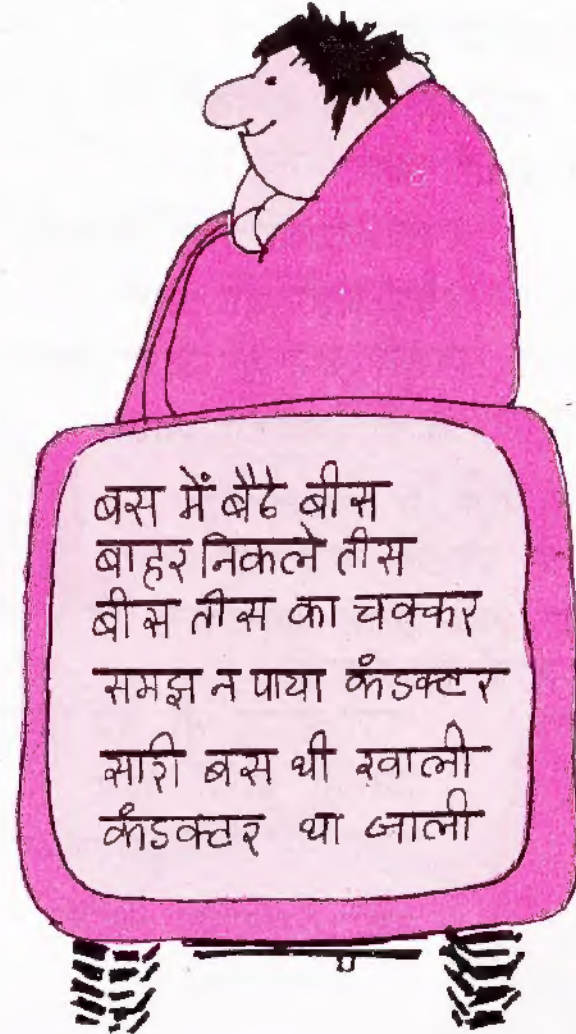 बस में बैठे बीस
बाहर निकले तीस
बीस तीस का चक्कर
समझ न पाया कंडक्टर
सारी बस थी खाली
कंडक्टर था जाली